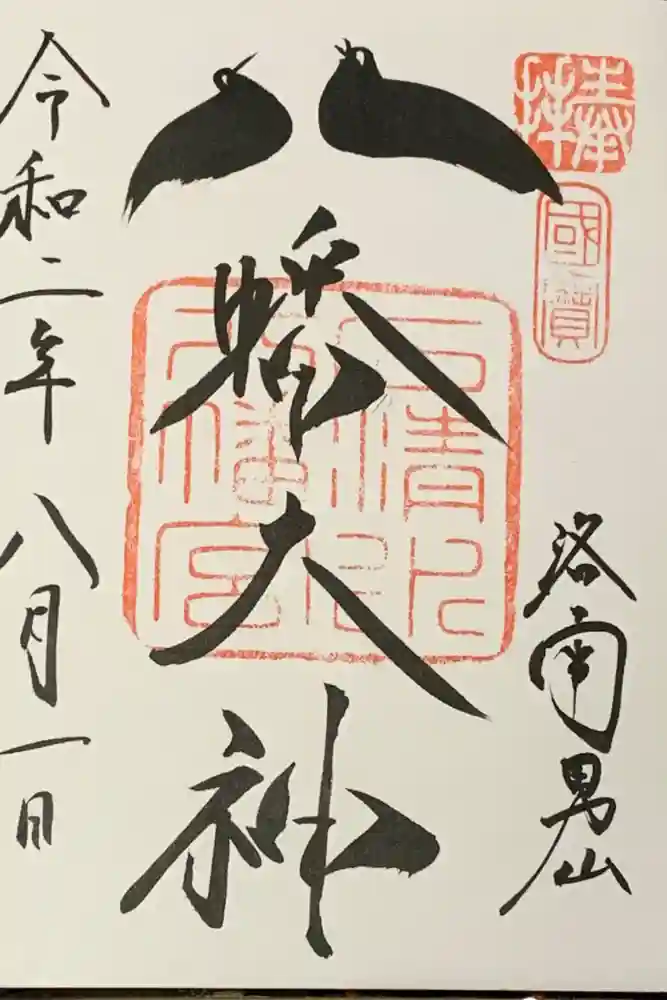 奉拝
國寳
洛南男山
八幡大神
石清水八幡宮
令和二年八月一日